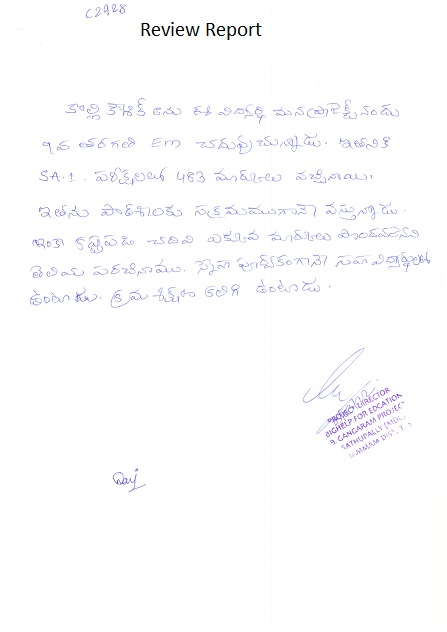 C2928
Review Report
కొల్లి కౌశిక్ అను ఈ విద్యార్థి మన ప్రాజెక్ట్ నందు
9వ తరగతి EM చదువుచున్నాడు. ఇతనికి
SA.1. పరీక్షలలో 483 మార్కులు వచ్చినాయి.
ఇతను పాఠశాలకు సక్రమముగానే వస్తున్నాడు.
ఇంకా కష్టపడి చదివి ఎక్కువ మార్కులు పొందవలెనని
తెలియ పరచినాము. స్నేహ పూర్వకంగానే సహ విద్యార్థులతో
ఉంటాడు. క్రమ శిక్షణ కలిగి ఉంటాడు.
PROJECT DIRECTOR
BIGHELP FOR EDCATION
9. GANGARAM PROJECT
SATHUPALLY (MDL.
KHAMMAM DIST. T. S